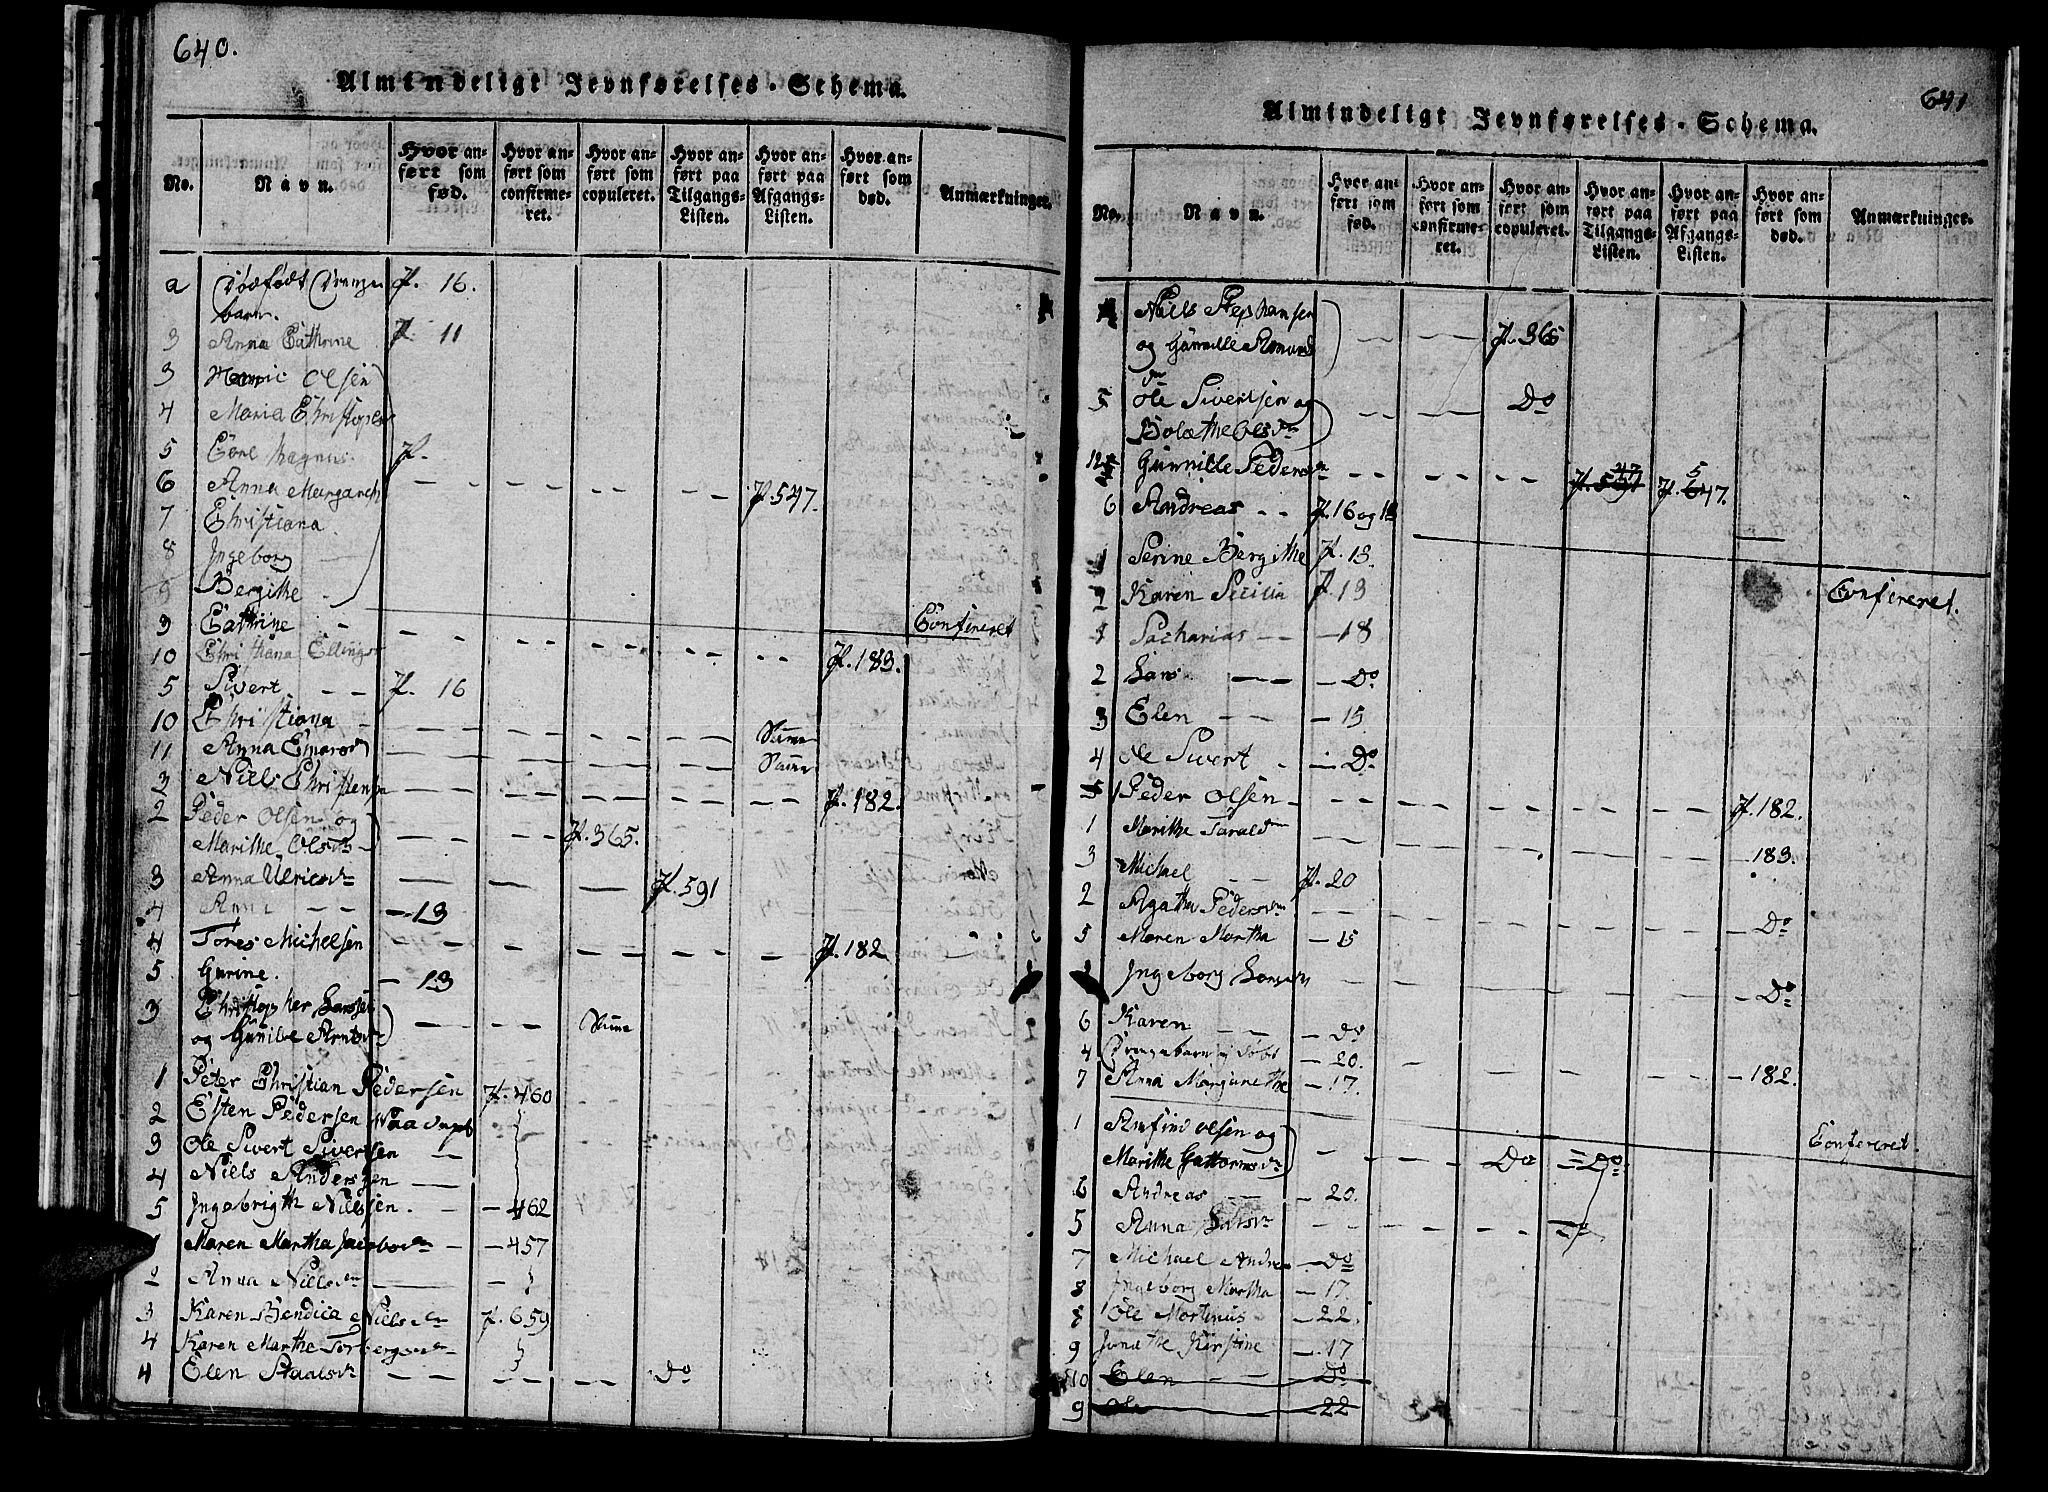 640.
Almindeligt Jevnførelses-Schema.
No. Navn. Hvor anført som fød. Hvor anført som confirmeret. Hvor anført som copuleret. Hvor anført paa Tilgangs-Listen. Hvor anført paa Afgangs-Listen. Hvor anført som død. Anmærkninger.
a Dødfødt Drenge P. 16.
barn.
3 Anna Cathrine P. 11
3 Olsen
4 Maria
5 P.
6 Anna Margareth — — — — P. 547.
7 Christiana
8 Ingeborg
9 Bergithe
9 Cathrine Confereret
10 Christiana Ellings — — — — — P. 183.
5 Sivert — — P. 16
10 Christiana — — — — Samme
11 Anna — — — — Samme
2 Niels Christensen — — — — — P. 182.
2 Peder Olsen og
Marithe Olsdr — — P. 365.
3 Anna Ulricsdr — — — P. 591
4 Anna — — — 13
4 Tores Michelsen — — — — — P. 182
5 Gurine. — 13
3 Christopher Larssen
og Gunilde Arntsdr — — Samme
1 Peter Christian Pedersen P. 460
2 Esten Pedersen
3 Ole Sivert Sivertsen —
4 Niels Andersen —
5 Ingebrigth Nillssen. — 462
1 Maren Martha Jacobsdr — — 457
2 Anna Nielsdr —
3 Karen Bendica Nielsdr P. 659
4 Karen Marthe Torbergsdr
4 Elen — — — Do
641
Almindeligt Jevnførelses-Schema.
No. Navn. Hvor anført som fød. Hvor anført som confirmeret. Hvor anført som copuleret. Hvor anført paa Tilgangs-Listen. Hvor anført paa Afgangs-Listen. Hvor anført som død. Anmærkninger.
4 Niels Stephansen
og Gunnille Amunds — — P. 365
dr
5 Ole Sivertsen og — — Do
Bolæthe Olsdr
12 Gunnille Pedersdr — — — P. 547.
6 Andreas — — P. 16 og 18
1 Serine Bergithe P. 13.
2 Karen Sicilia P. 13 Confereret.
1 Sacharias — — — 18
2 Lars — — — Do
3 Elen — — — 15
4 Ole Sivert — Do
5 Peder Olsen — — — — — P. 182.
1 Marithe Taraldsdr — — — — — 183.
3 Michael — P. 20
2 Agatha Pedersdr — — — — — Do
5 Maren Martha — 15
Ingeborg Larsdr — — — — — Do
6 Karen — — — Do
4 Drengebarn — 20. — — — — 182.
7 Anna Margarethe — 17.
1 Arnfind Olsen og Confereret.
Marithe Guttormsdr — — Do = Do
6 Andreas — — 20.
5 Anna Larsdr — — —
7 Michael Andreas — Do
8 Ingeborg Martha — 17.
8 Ole Mortinus — 22.
9 Jonethe Kirstine — 17
10 Elen — — Do
9 Ole — 22